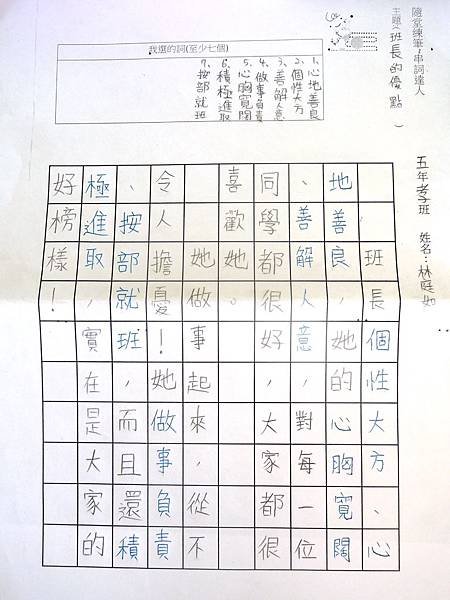 隨堂練筆-串詞達人
主題（班長的優點）
五年孝班 姓名：林庭如
我選的詞(至少七個)
1、心地善良
2、個性大方
3、善解人意
4、做事負責
5、心胸寬闊
6、積極進取
7、按部就班
班長個性大方、心
地善良，她的心胸寬闊
、善解人意，對每一位
同學都很好，大家都很
喜歡她。
她做事起來，從不
令人擔憂！她做事負責
、按部就班，而且還積
極進取，實在是大家的
好榜樣！